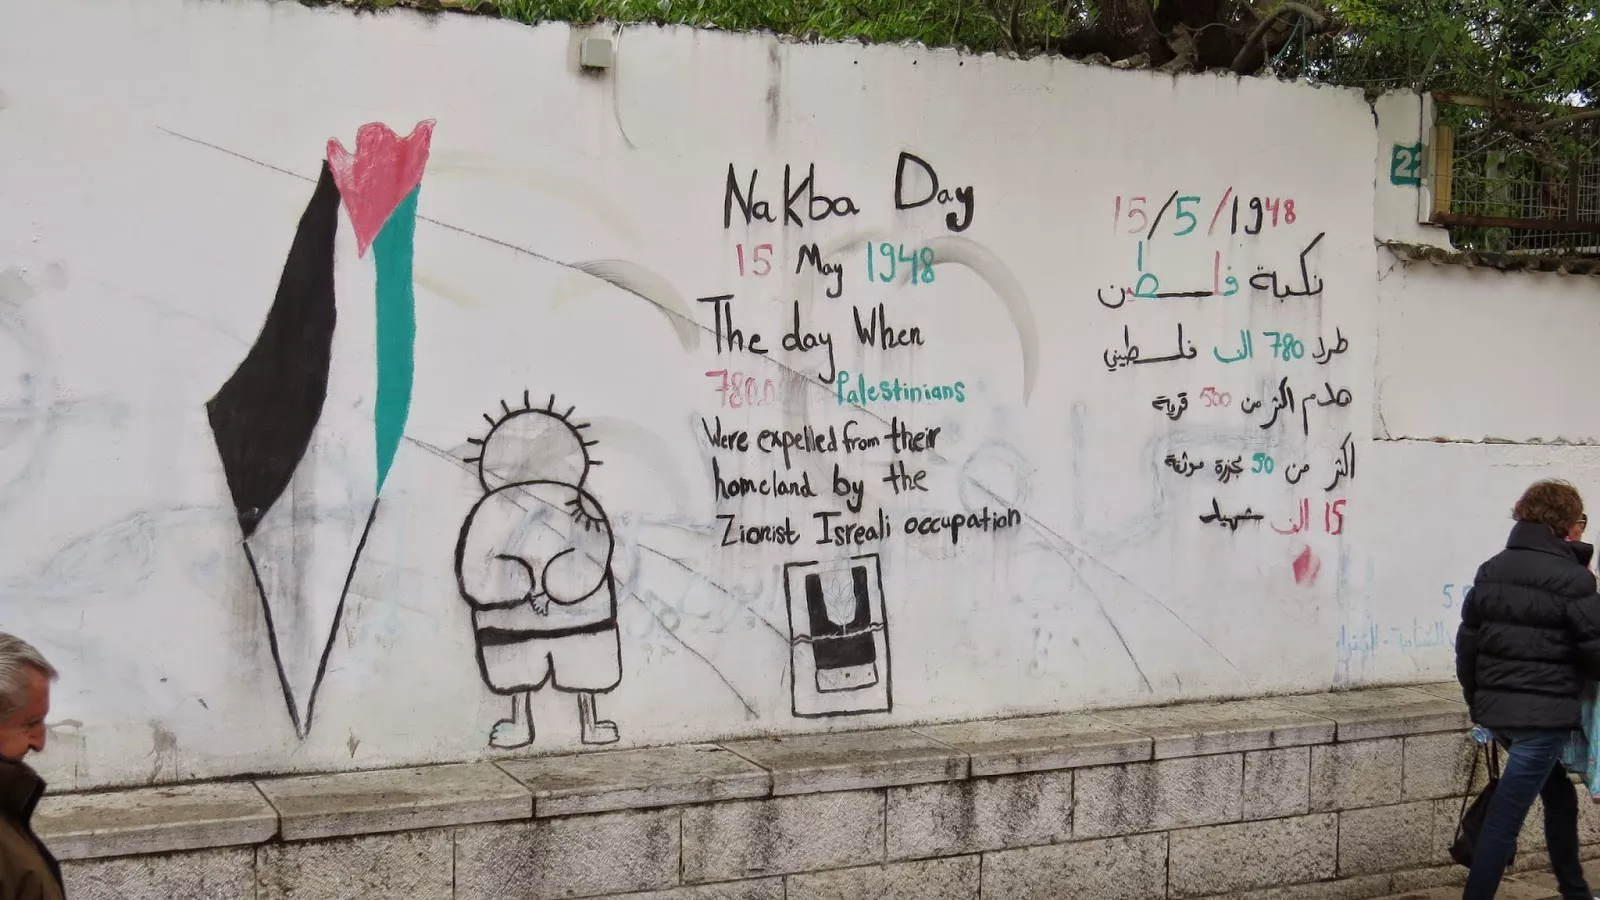 Nakba Day
15 May 1948
The day When
Palestinians
Were expelled from their
homeland by the
Zionist Isreali occupation
15/5/1948
نكبة فلسطين
طرد 780 الف فلسطيني
هدم اكثر من 500 قرية
اكثر من 50 مجزرة موثقة
15 الف شهيد
22